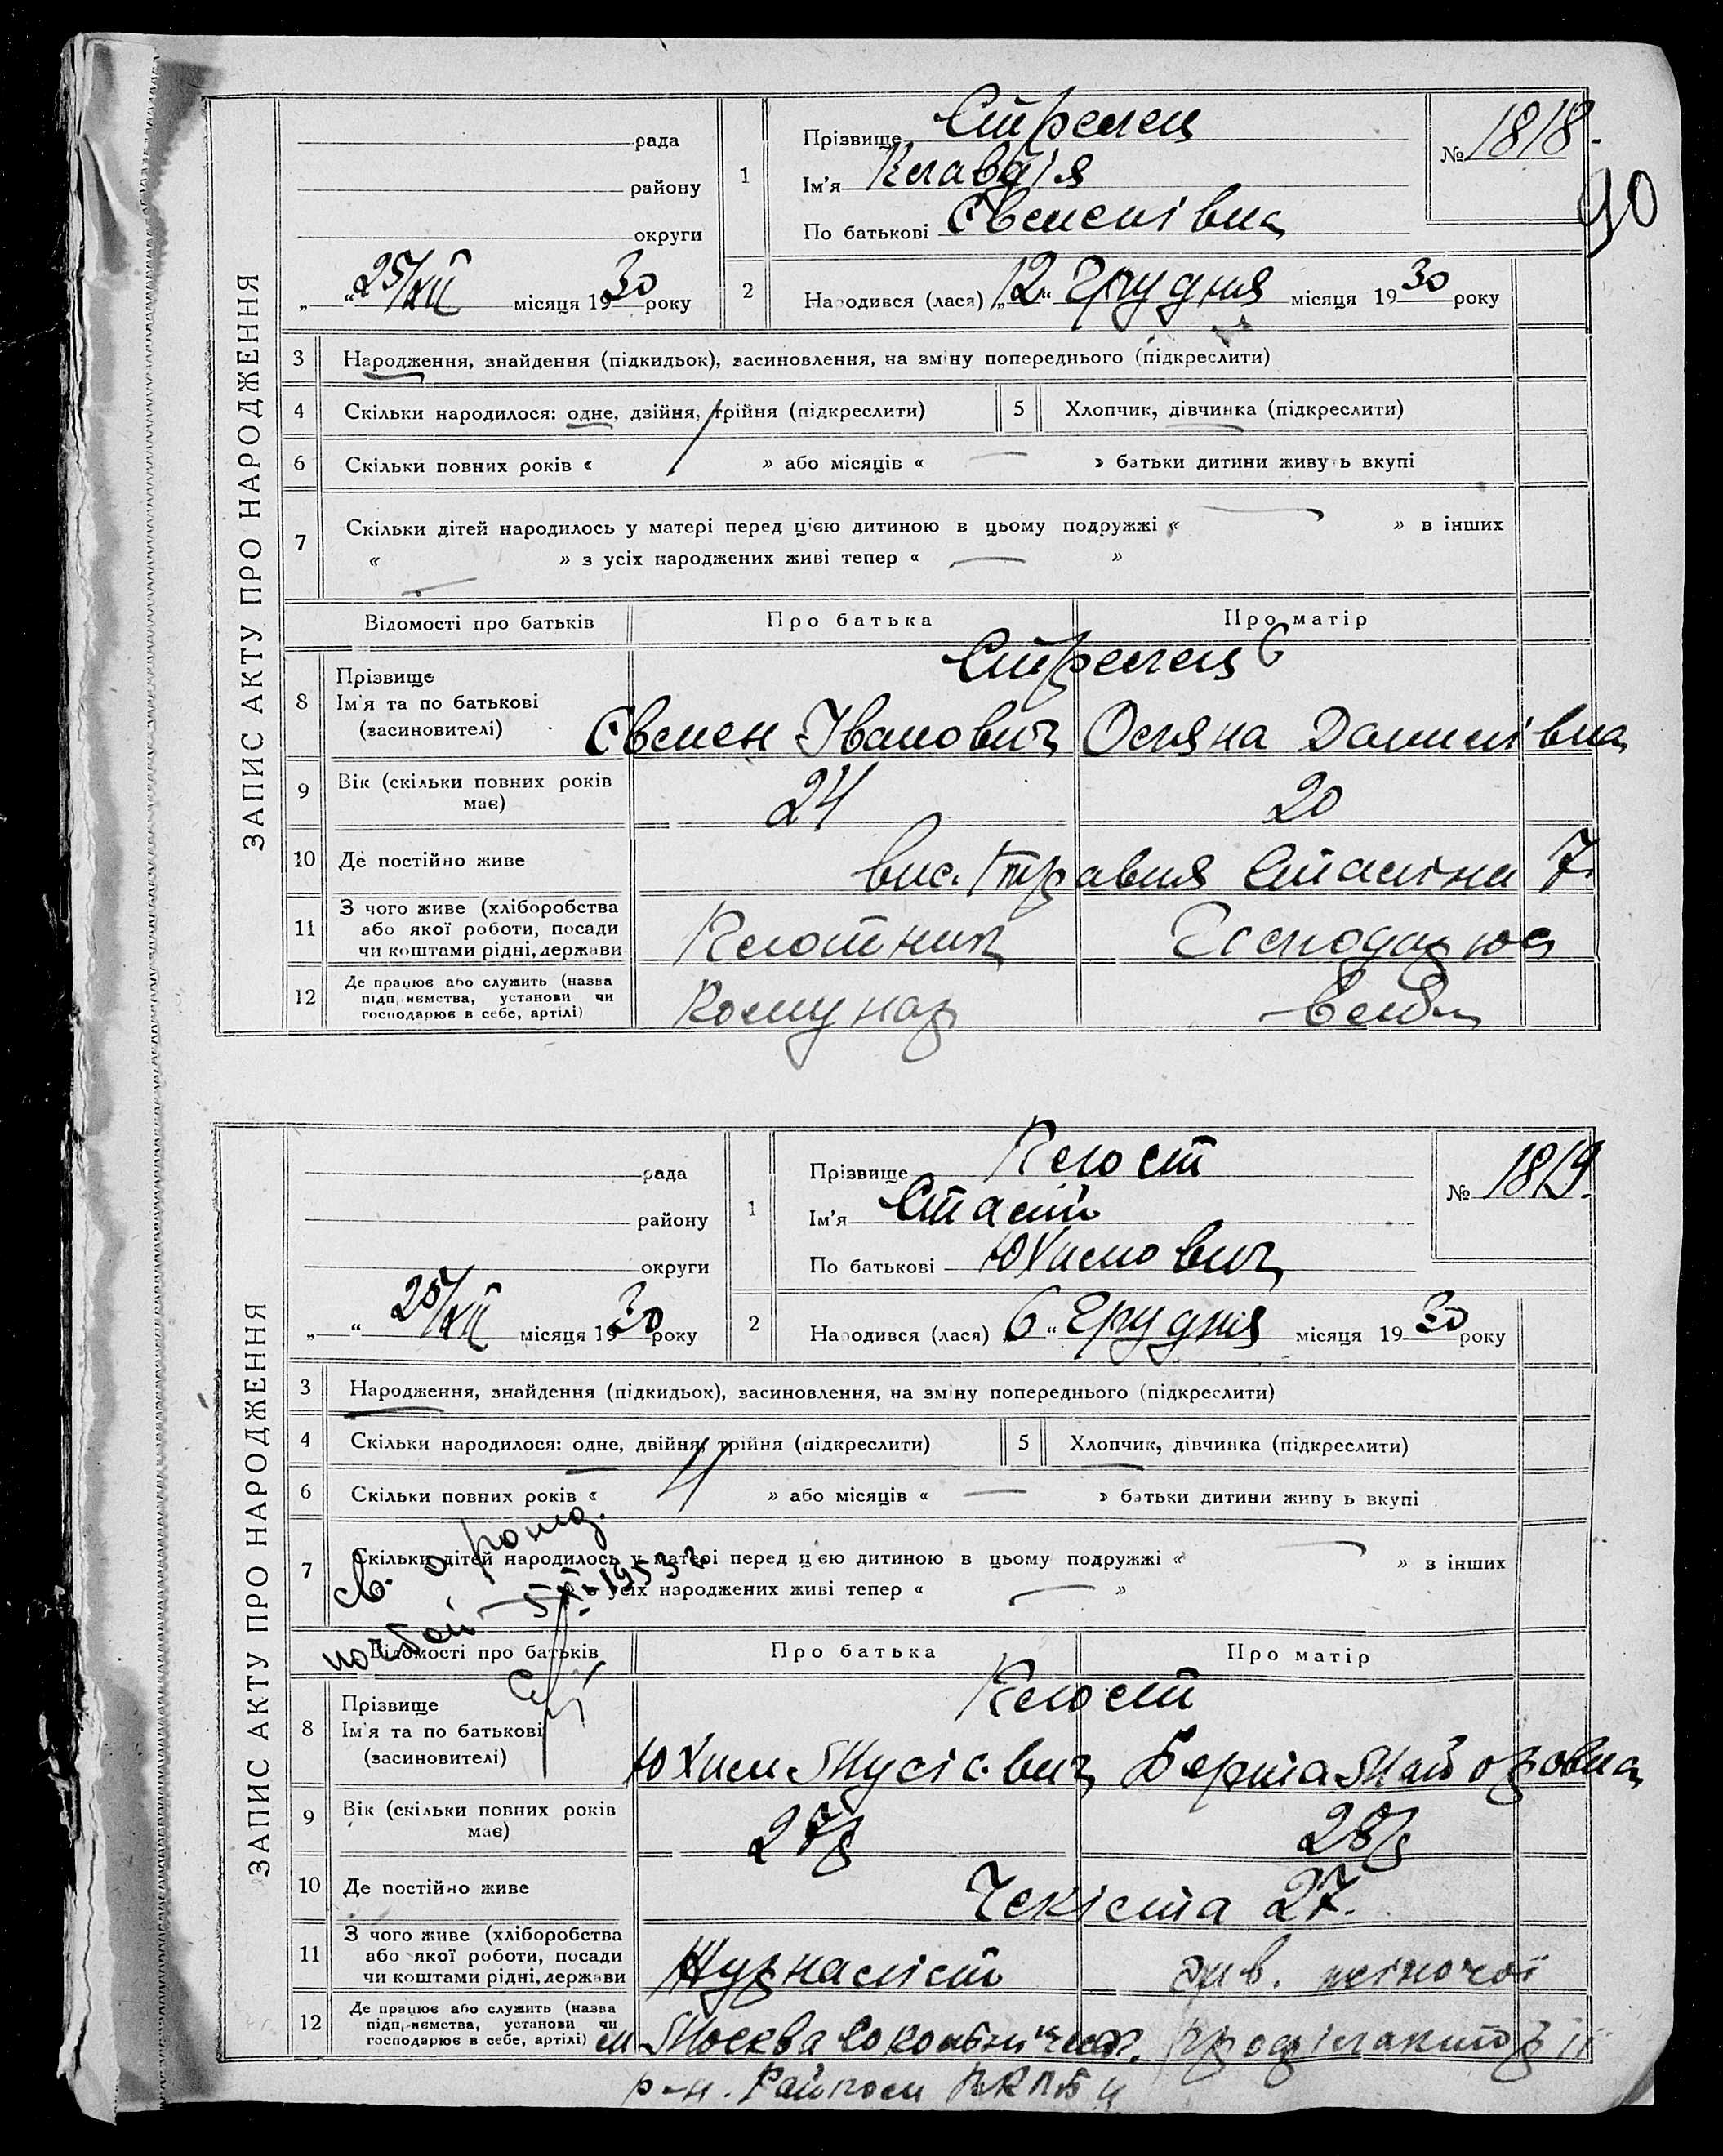 90
ЗАПИС АКТУ ПРО НАРОДЖЕННЯ
рада
району
округи
„ “ 25/XII місяця 1930 року
1
Прізвище Стрелец
Ім'я Клавдія
По батькові Євменівна
№ 1818.
2
Народився (лася) „12“ Грудня місяця 1930 року
3 Народження, знайдення (підкидьок), засиновлення, на зміну попереднього (підкреслити)
4 Скільки народилося: одне, двійня, трійня (підкреслити)
5 Хлопчик, дівчинка (підкреслити)
6 Скільки повних років « / » або місяців « — » батьки дитини живуть вкупі
7 Скільки дітей народилось у матері перед цією дитиною в цьому подружжі « — » в інших
« — » з усіх народжених живі тепер « — »
Відомості про батьків
Про батька
Про матір
8 Прізвище
Ім'я та по батькові
(засиновителі)
Стрелец
Євмен Іванович
Оляна Данилівна
9 Вік (скільки повних років має)
24
20
10 Де постійно живе
Сталіна 7.
11 З чого живе (хліборобства
або якої роботи, посади
чи коштами рідні, держави
Клотник
Господарює
12 Де працює або служить (назва
підприємства, установи чи
господарює в себе, артілі)
Комунар
ЗАПИС АКТУ ПРО НАРОДЖЕННЯ
рада
району
округи
„ “ 25/XII місяця 1930 року
1
Прізвище Клюст
Ім'я Сталій
По батькові Юхимович
№ 1819.
2
Народився (лася) „6“ Грудня місяця 1930 року
3 Народження, знайдення (підкидьок), засиновлення, на зміну попереднього (підкреслити)
4 Скільки народилося: одне, двійня, трійня (підкреслити)
5 Хлопчик, дівчинка (підкреслити)
6 Скільки повних років « 4 » або місяців « — » батьки дитини живуть вкупі
7 Скільки дітей народилось у матері перед цією дитиною в цьому подружжі « — » в інших
з усіх народжених живі тепер « — »
св. о рожд.
1953 г
Відомості про батьків
Про батька
Про матір
8 Прізвище
Ім'я та по батькові
(засиновителі)
Клюст
Юхим Мусієвич
Берта Майоровна
9 Вік (скільки повних років має)
27р
28р
10 Де постійно живе
Чекіста 27.
11 З чого живе (хліборобства
або якої роботи, посади
чи коштами рідні, держави
Журналіст
зав. жіночої
12 Де працює або служить (назва
підприємства, установи чи
господарює в себе, артілі)
м. Москва
профілакторії
р-н. Райком